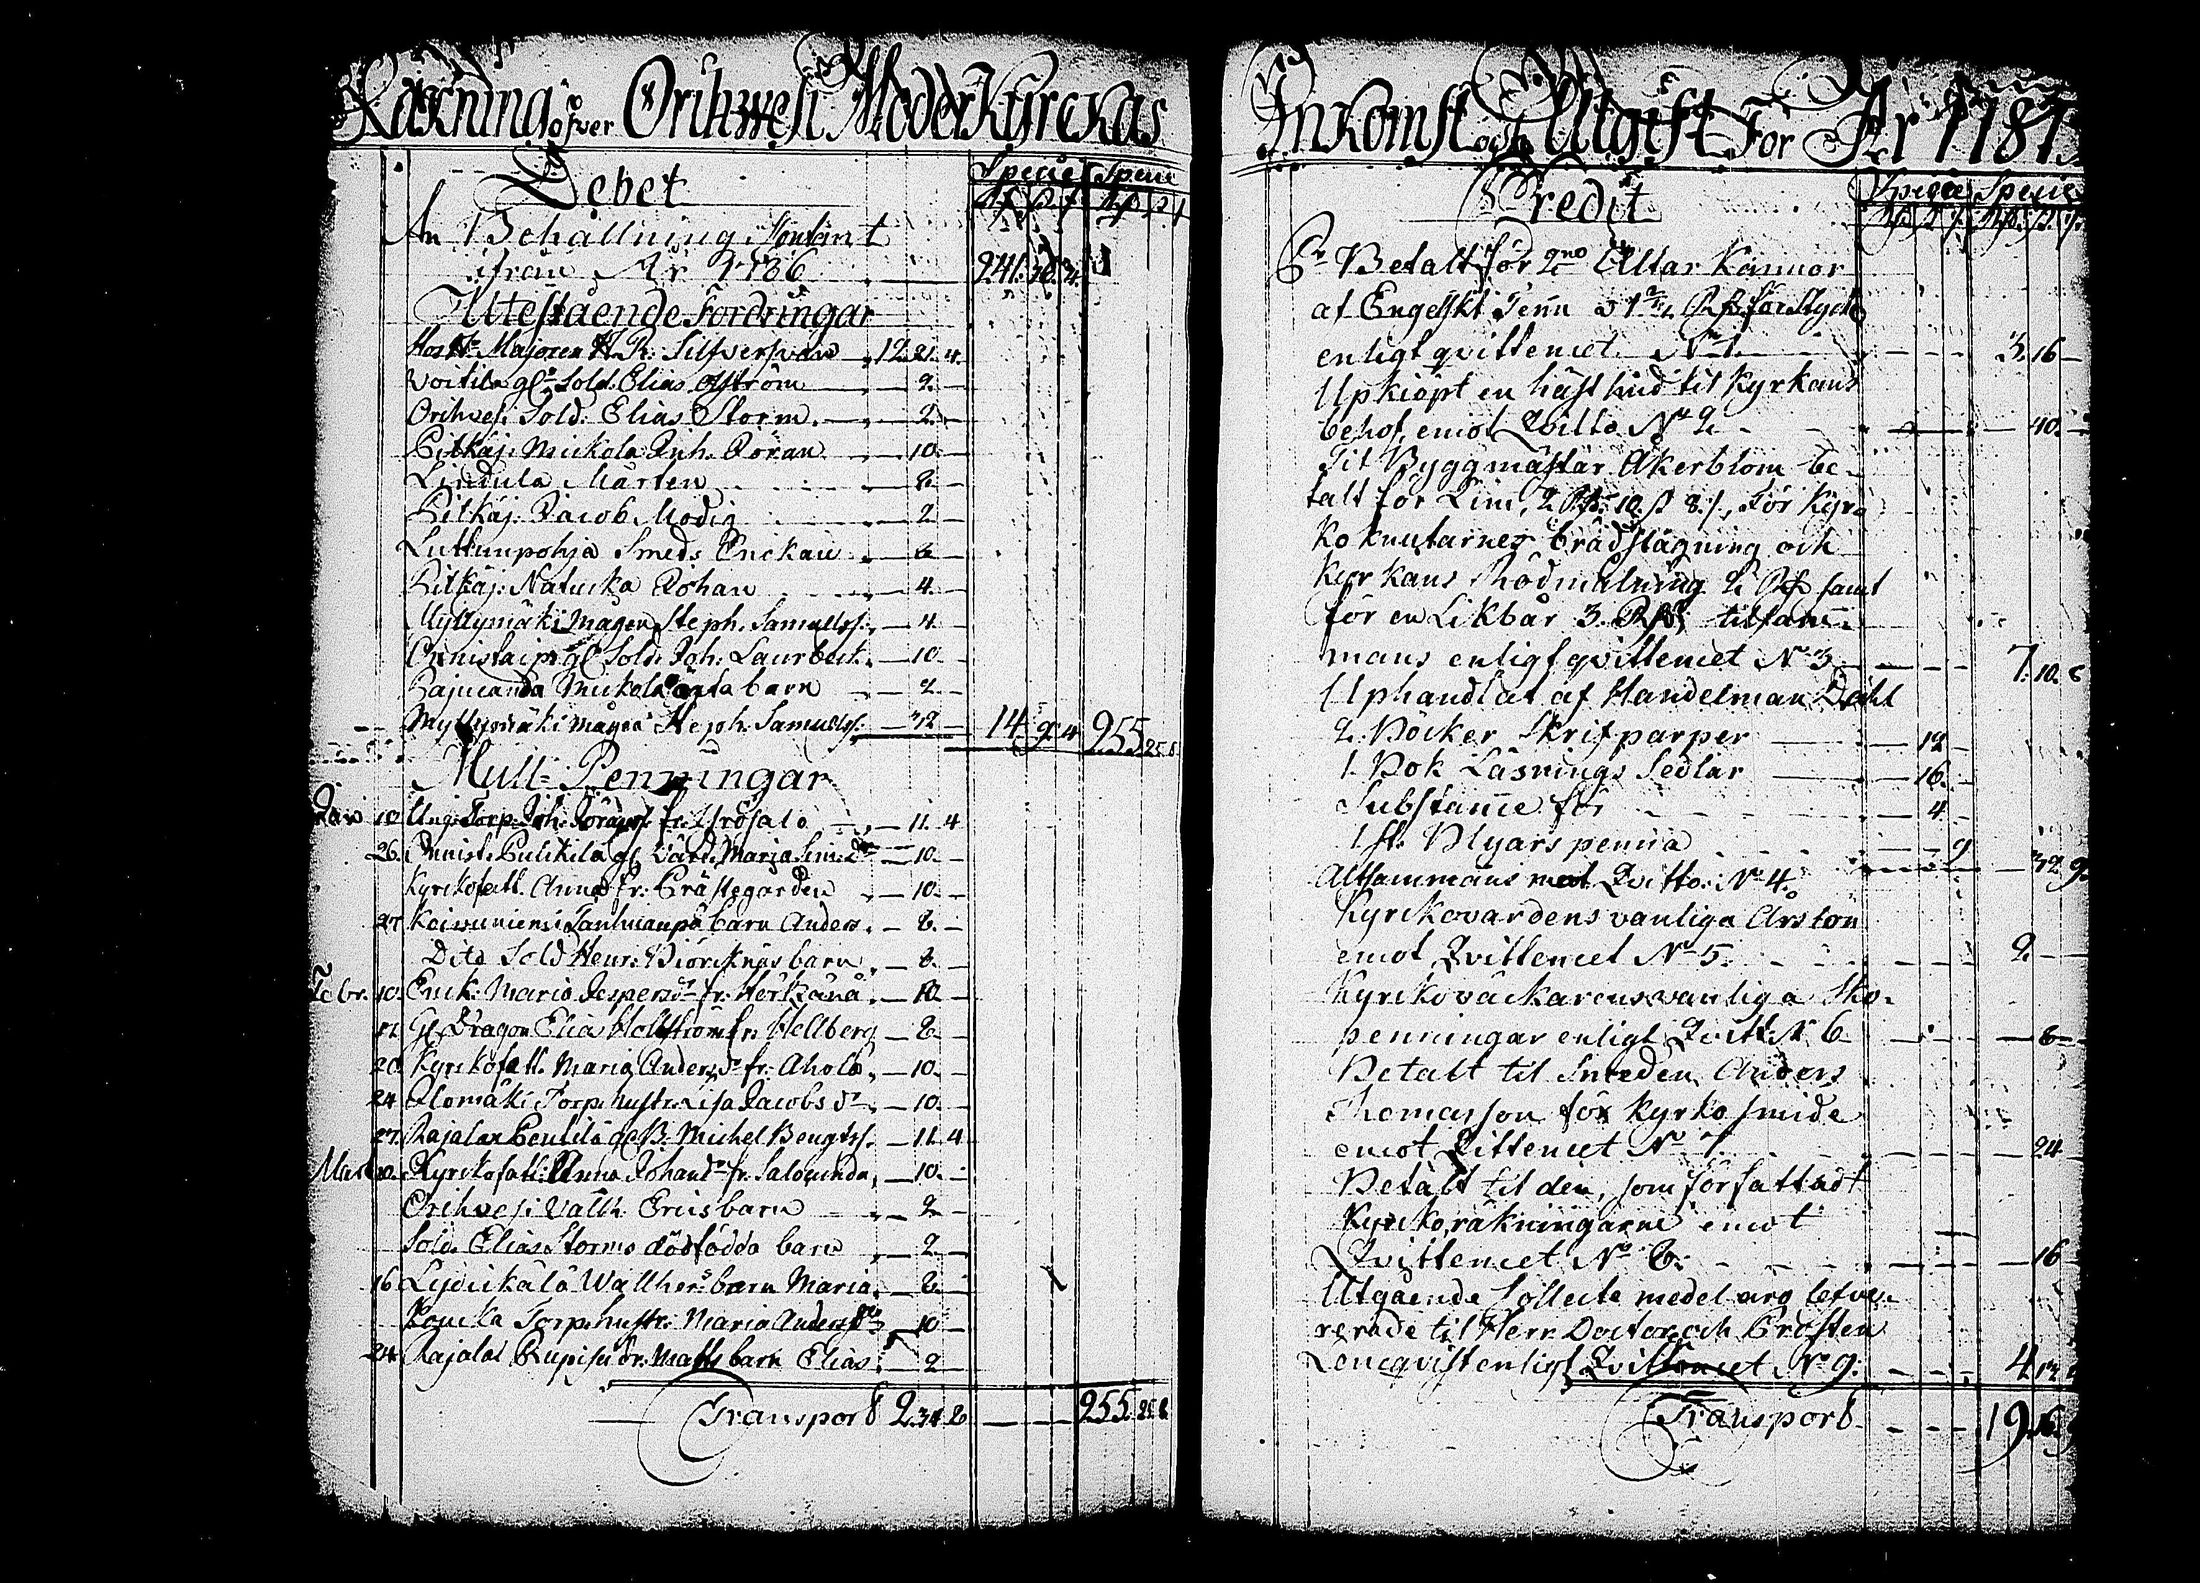 Räkning öfver Orihwesi Moder Kyrckas
Debet
Specie Specie
An Behållning Contant
ifrån År 1786 241. 16. 4
Utestående Fordringar
Hos Hr Majoren Silfversvan 12. 21. 4
Voitila gl. Sold. Elias Öström 2
Orihvesi Sold. Elias Storm 2
Pitkäj. Mickola Inh. Göran 10
Lindula Mårten 8
Pitkäj. Jacob Modig 2
Luttunpohja Smeds Enckan 8
Pitkäj. Natucka Johan 4
Myllymäki Mågen Steph. Samuelss. 4
gl. Sold. Joh. 10
Mickola barn 2
Myllymäki mågen Steph. Samuelss. 32 14. 9. 4 255. 25. 8
Mull-Penningar
10 Ung. Torp. Joh. fr. Yrösalo 11. 4
26. Pulckila gl. Värd. Maria Sim. dr 10
Kyrckofatt. Anna fr. Prästegården 10
27 Koivuniemi barn Anders 8
Dito Sold. Henr. Biörcknäs barn 8
Febr. 10. Enck. Maria Jespers dr fr. Herkänä 10
Gl. Dragon Elia Hollström fr. Hellberg 8
20 Kyrckofatt. Maria Anders dr fr. Ahola 10
24 Alomäki Torp. hustr. Lisa Jacobs dr 10
27. Rajalax Penttilä gl. B. Michel Bengtss. 11. 4
Mart. Kyrckofatt. Anna Johans dr fr. Salokunda 10
Orihvesi Vallh. Erics barn 2
Sold. Elias Storms dödfödda barn 2
16 Lydickälä Wallhers barn Maria 8
Koucka Torp. hustr. Maria Anders dr 10
24 Rajalax Matts barn Elias 2
Transport 2. 34. 8 255. 25. 8
Inkomst och Utgift För År 1787
Credit
Specie Specie
Pr Betalt för 2no Altar Kannor
af Engelskt Tenn för Stycke
enligt qvittencet No 1 3. 16
Upkiöpt en häst hud til Kyrkans
behof emot Qvitto No 2 40
Til Byggmästar Åkerblom be-
talt för Lim, 2 Rd. 10 s 8 /, För Kyr-
ko knutarnes brädslagning och
Kyrkans Rödmålning 2 Rd samt
för en Likbår 3. Rd tilsam-
mans enligt qvittencet No 3 7. 10. 8
Uphandlat af Handelman Dahl
2. Böcker Skrifparper 12
1. Bok Läsnings Sedlar 16
Substance för 4
1 st. Blyars penna 9
Altsammans mot Qvitto No 4. 32. 9
Kyrckovärdens vanliga Årslön
emot Qvittencet No 5. 2
Kyrckoväckarens vanliga Sko-
penningar enligt Qvitt. No 6 8
Betalt til Smeden Anders
Thomasson för Kyrko smide
emot Qvittencet No 7 24
Betalt til den, som författadt
Kyrckoräkningarne emot
Qvittencet No 8. 16
Utgående Collecte medel aro lefve-
rerade til Herr Doctor och Prosten
Loncqvist enligt Qvittencet No 9. 4. 12
Transport 19. 16. 9